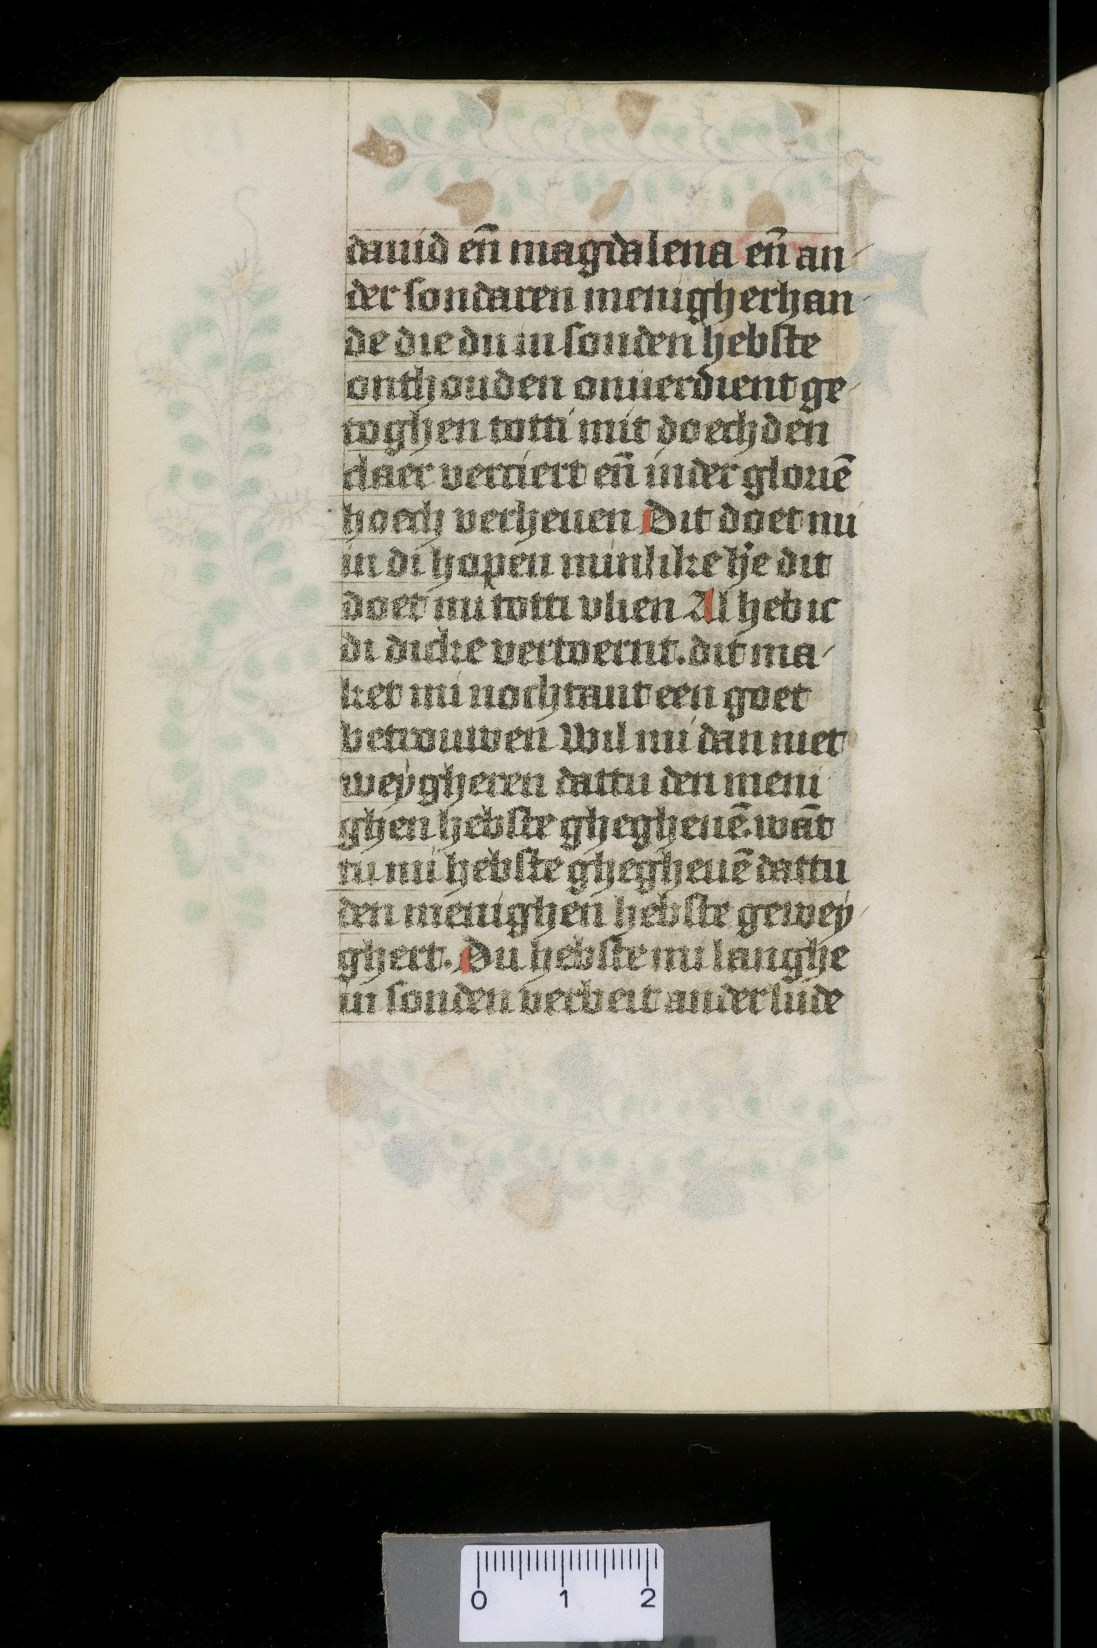 dauid en̄ magdalena en̄ an-
der sondaren menigherhan-
de die du in sonden hebste
onthouden onuerdient ge-
toghen totti mit doechden
claer verciert en̄ in der gloriē
hoech verheuen Dit doet mi
in di hopen minlike dit
doet mi totti vlien Al heb ic
di dicke vertoernt. dit ma-
ket mi nochtant een goet
betrouwen Wil mi dan niet
weygheren dattu den meni
ghen hebste ghegheuē. wāt
tu mi hebste ghegheuē dattu
den menighen hebste gewey-
ghert. Du hebste mi langhe
in sonden verbeit ander lude
0 1 2